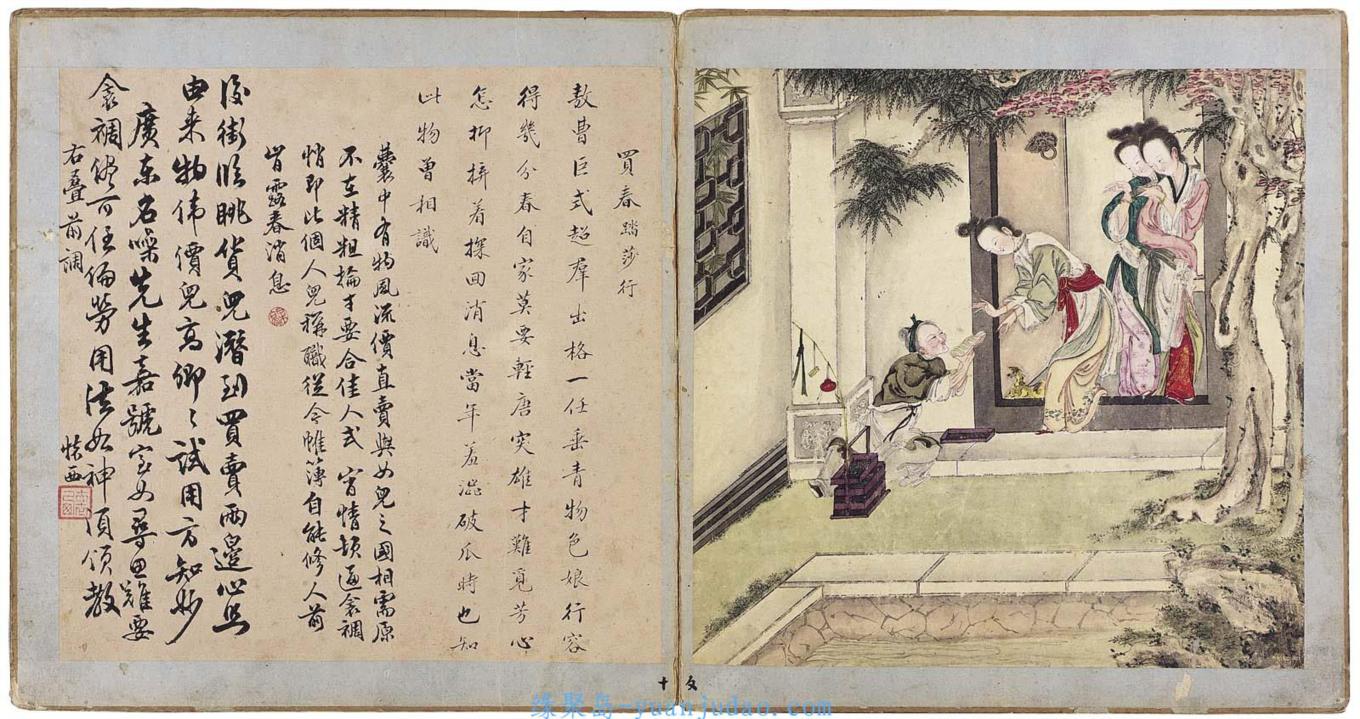 買春踏莎行
敖曹巨式超羣出格一任垂青物色娘行容
得幾分春自家莫要輕唐突雄才難覓芳心
怎抑拚着探回消息當年羞澀破瓜時也知
此物曾相識
囊中有物風流價直賣與女兒之國相需原
不在精粗掄才要合佳人式 宵情頓逼衾裯
悄即此個人兒稱職從今帷簿自能修人前
肯露春消息
後街臨眺貨兒潛到買賣兩邊心照
由来物偉價兒高卿〻試用方知妙
廣東名噪先生嘉號室女尋思難要
衾裯終可任偏勞用法如神須領教
右疊前調
西
十
文
缘聚岛-yuanjudao.com